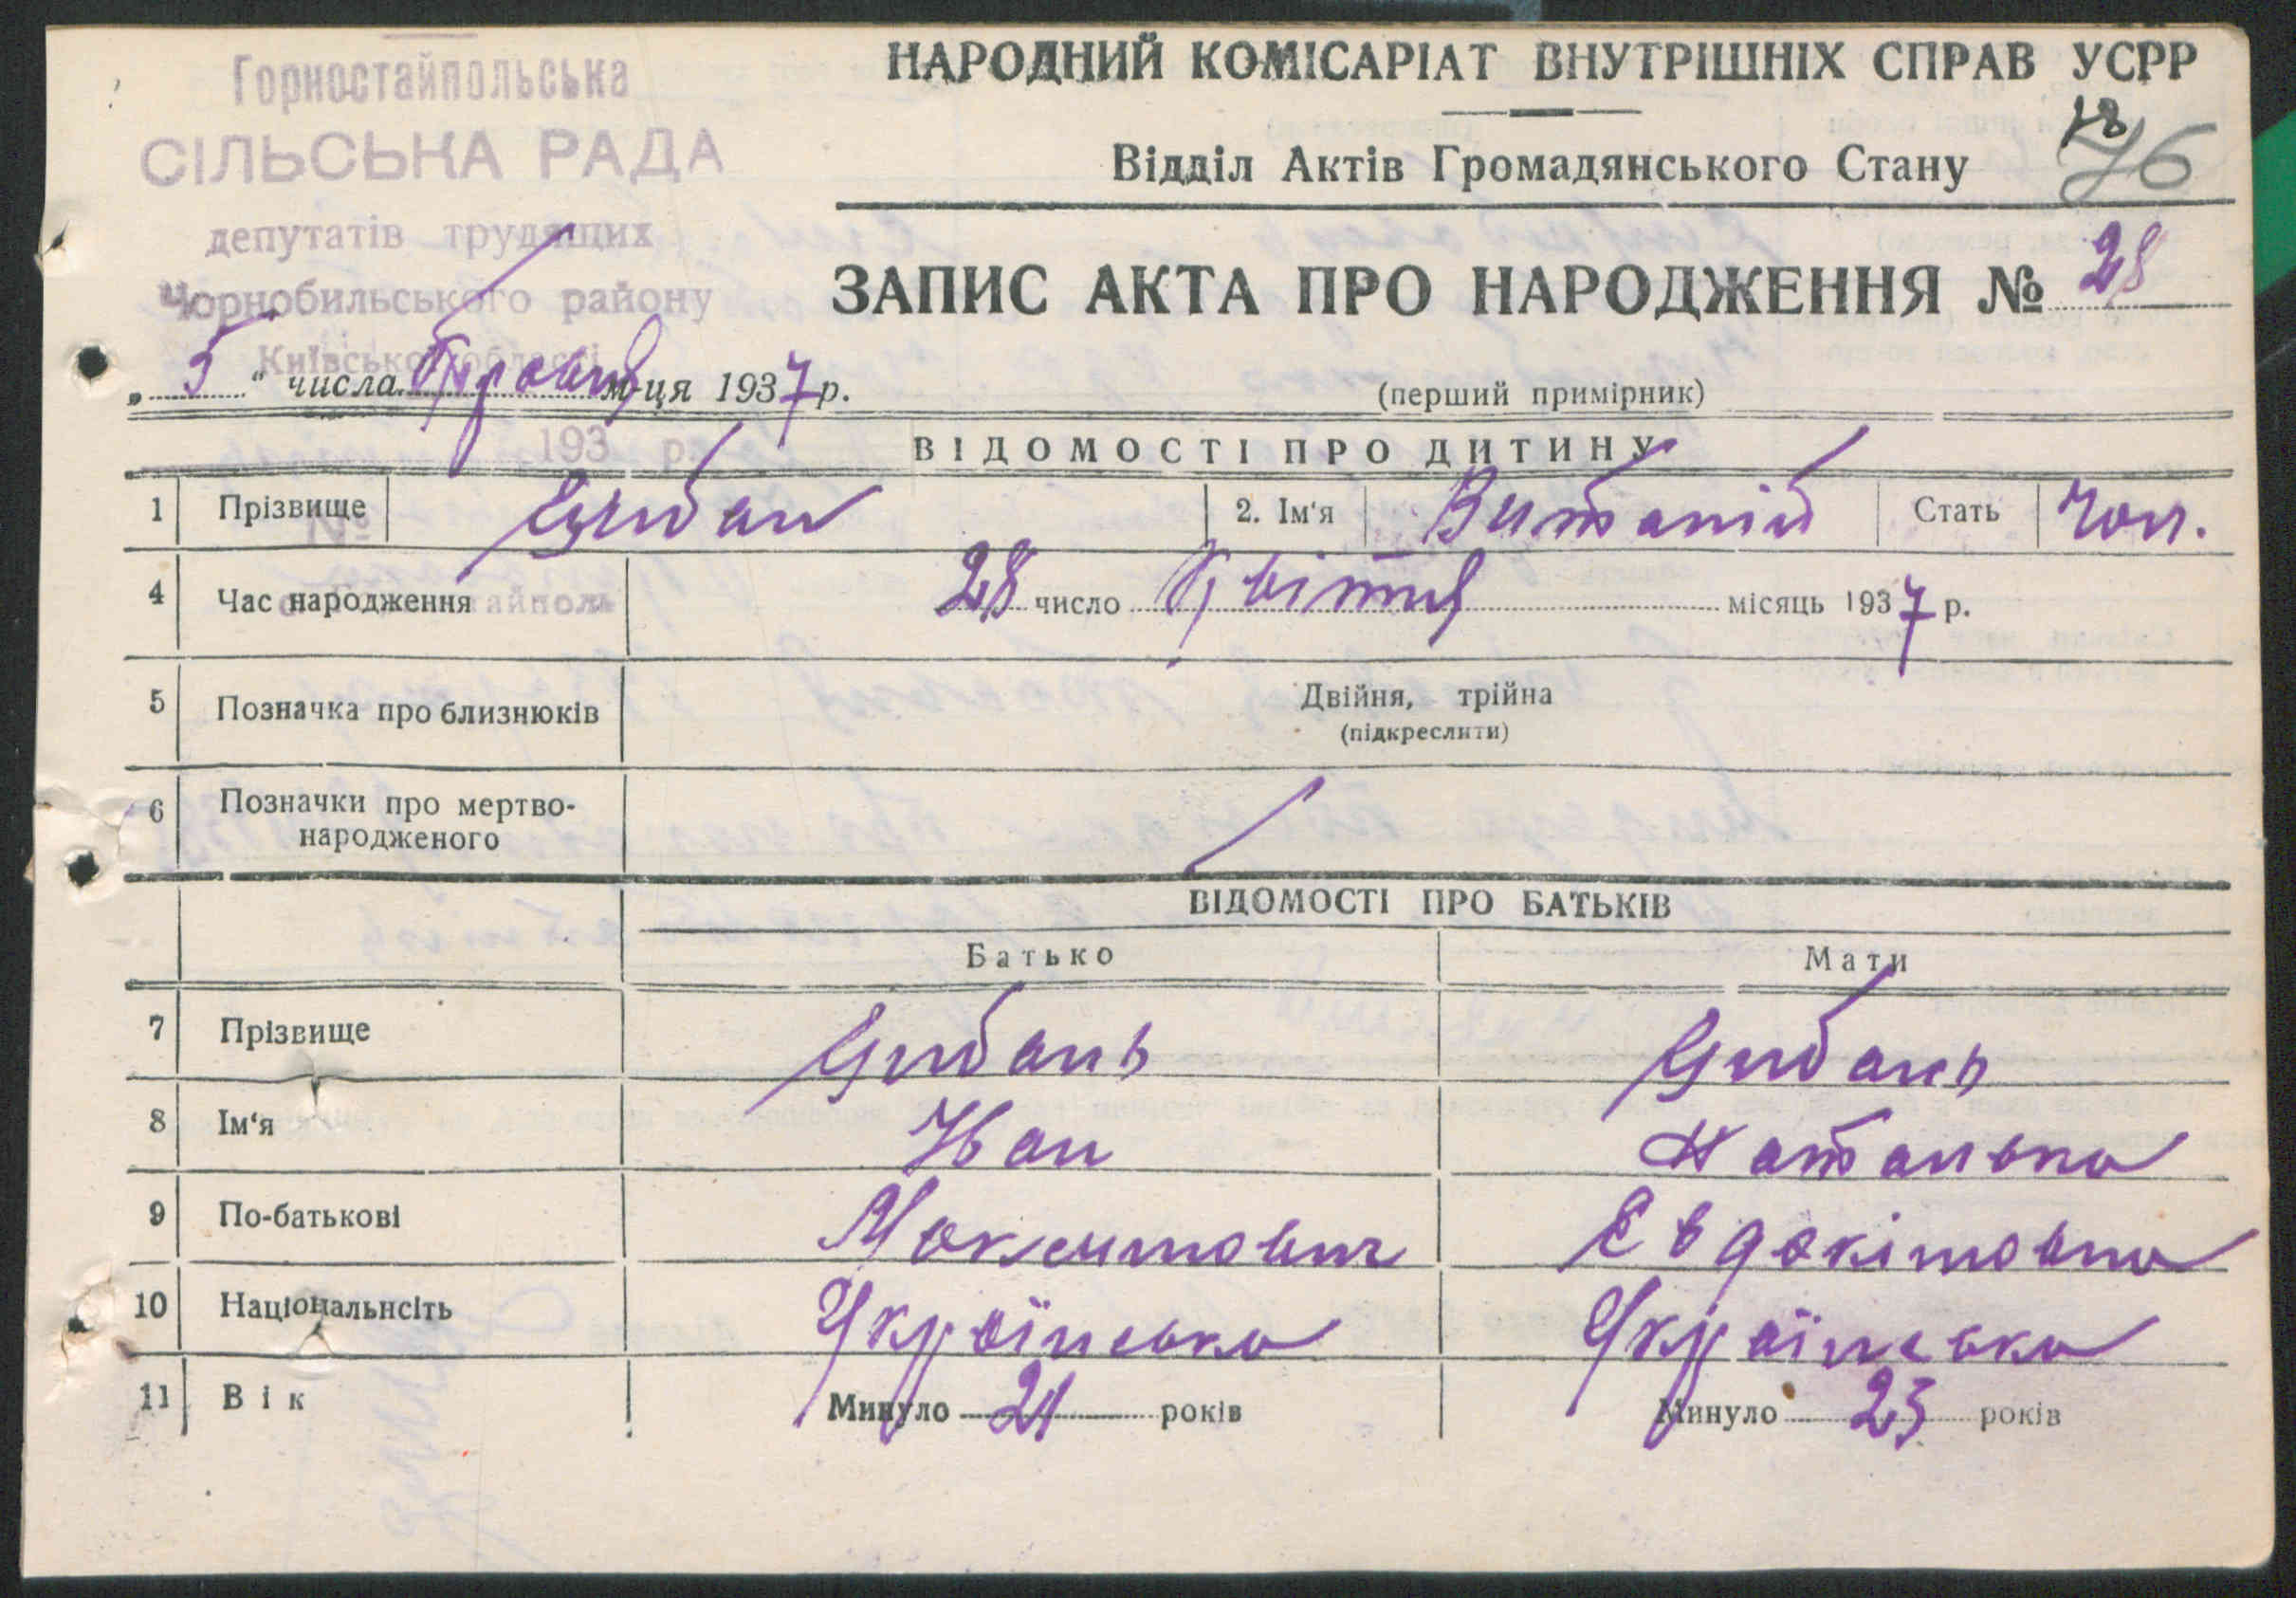 Горностайпольська
СІЛЬСЬКА РАДА
депутатів трудящих
Чорнобильського району
Київської області
193 р.
№
НАРОДНИЙ КОМІСАРІАТ ВНУТРІШНІХ СПРАВ УСРР
18
76
Відділ Актів Громадянського Стану
ЗАПИС АКТА ПРО НАРОДЖЕННЯ № 28
„ 5 “ числа Травня м-ця 1937 р.
(перший примірник)
ВІДОМОСТІ ПРО ДИТИНУ
1 Прізвище Цибан 2. Ім‘я Виталій Стать Чол.
4 Час народження 28 число Квітня місяць 1937 р.
5 Позначка про близнюків Двійня, трійна
(підкреслити)
6 Позначки про мертво-
народженого
ВІДОМОСТІ ПРО БАТЬКІВ
Батько Мати
7 Прізвище Цибань Цибань
8 Ім‘я Іван Наталка
9 По-батькові Максимович Евдокімовна
10 Національнсіть Українська Українська
11 Вік Минуло 21 років Минуло 23 років